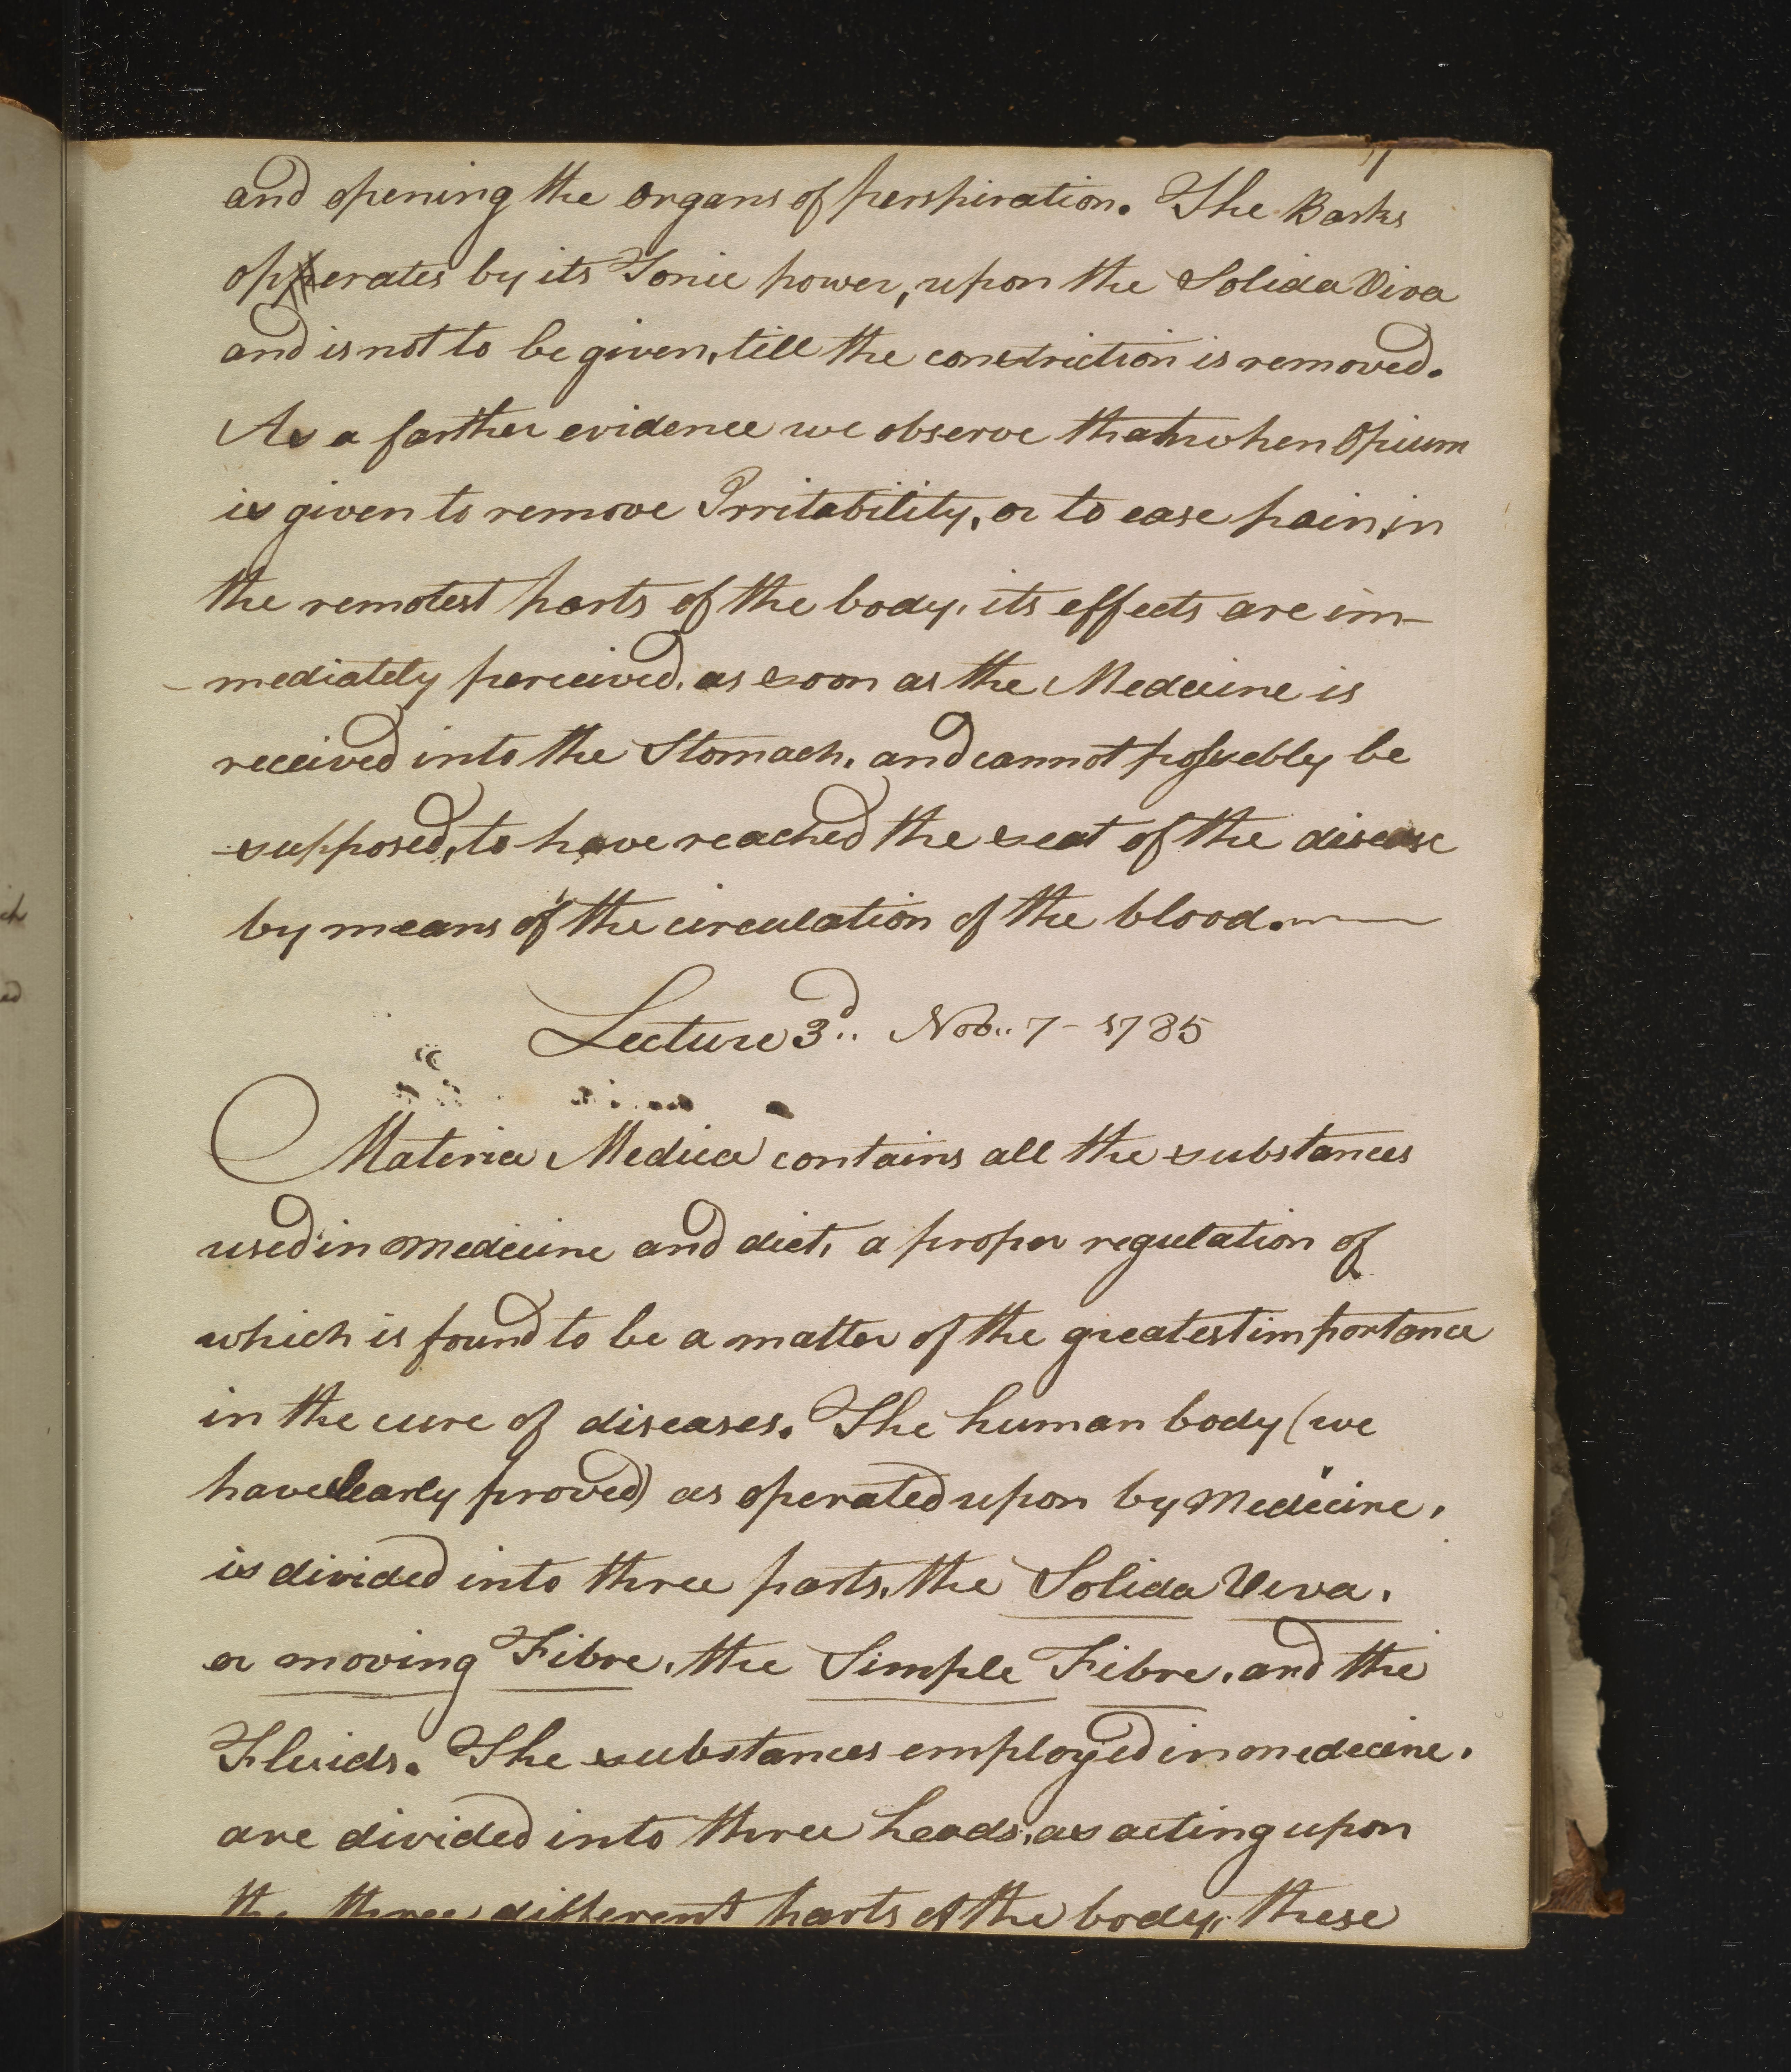 and opening the organs of perspiration. The Barks
operates by its Tonic power, upon the Solida Viva
and is not to be given, till the constriction is removed.
As a farther evidence we observe that when Opium
is given to remove Irritability, or to ease pain, in
the remotest parts of the body, its effects are im-
-mediately perceived, as soon as the Medecine is
received into the Stomach, and cannot possebly be
supposed, to have reached the seat of the disease
by means of the circulation of the blood.
Lecture 3d.. Nov.. 7 - 1785
Materia Medica contains all the substances
used in medecine and diet, a proper regulation of
which is found to be a matter of the greatest importance
in the cure of diseases. The human body (we
have clearly proved) as operated upon by Medecine,
is divided into three parts, the Solida Viva,
or moving Fibre, the Simple Fibre, and the
Fluids. The substances employed in medecine,
are divided into three heads, as acting upon
the three different parts of the body, these